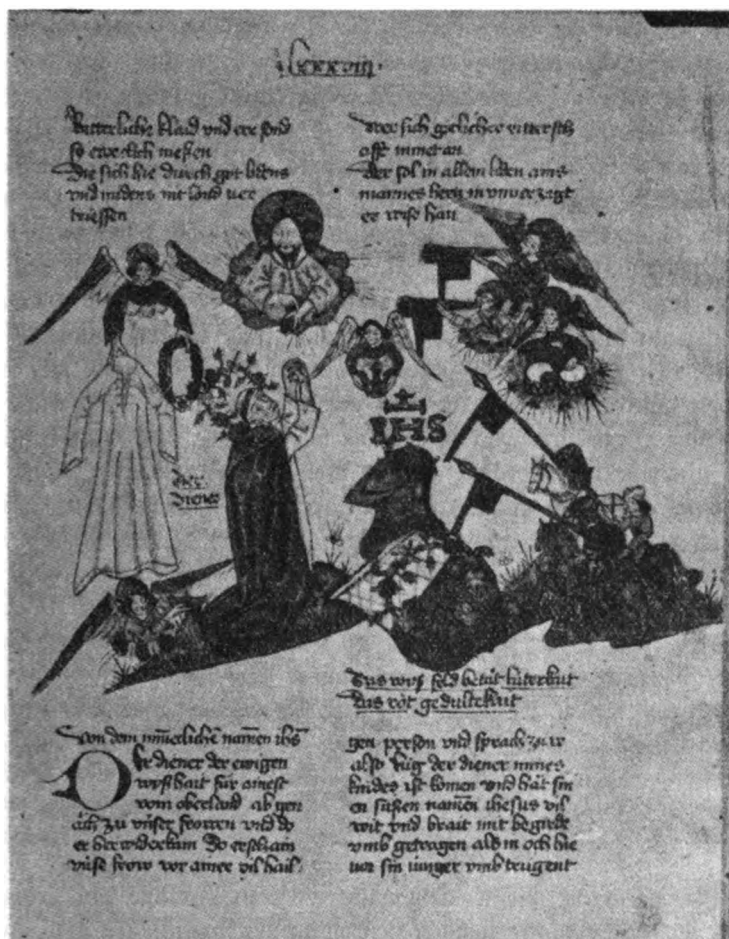 Ritterliche klaid vnd ere sond
so eweclich niessen
Die sich hie durch got lidens
vnd midens nit lond ver
driessen
Wer sich
nimet an
Der sol in allem liden ains
mannes
er wise han
IHS
der
diener
Das wiss feld betút luterkait
das rot gedultekait
Von dem minneclichē namen ihs
Der diener der ewigen
wishait für ainest
vom oberland ab gen
ach zu vnser frowen vnd do
er herwiderkam do erschain
vnse frow vor ainer vil hail
gen person vnd sprach zu ir
also lug der diener mines
kindes ist komen vnd hat sin
en süssen namen ihesus vil
wit vnd brait mit begirde
vmb getragen als in och hie
vor sin iunger vmb trugent